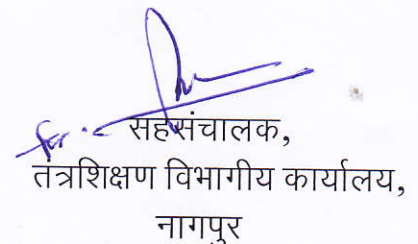 सहसंचालक,
तंत्रशिक्षण विभागीय कार्यालय,
नागपुर